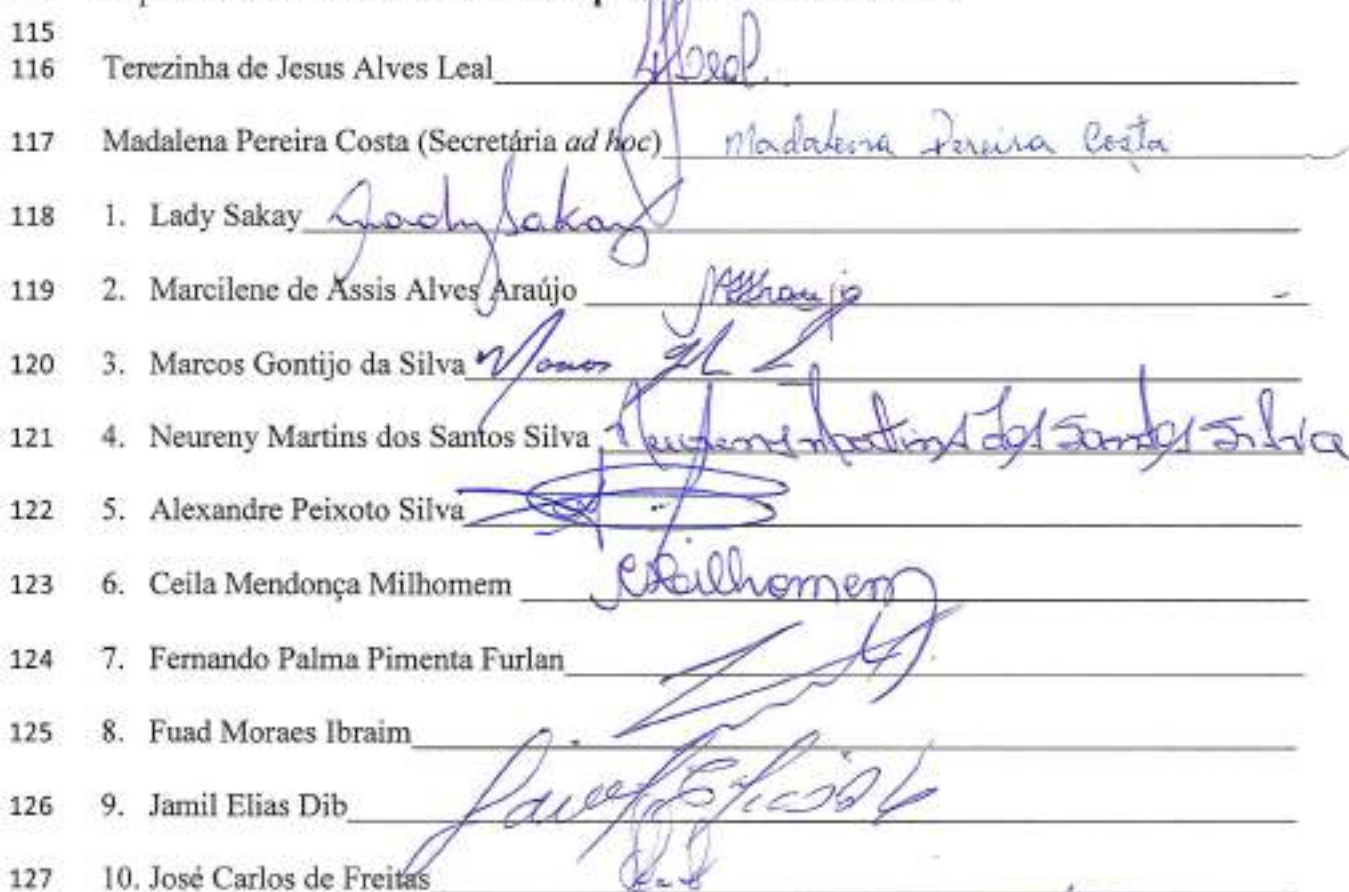 115
116 Terezinha de Jesus Alves Leal
117 Madalena Pereira Costa (Secretária ad hoc) Madalena Pereira Costa
118 1. Lady Sakay Lady Sakay
119 2. Marcilene de Assis Alves Araújo MAAraujo
120 3. Marcos Gontijo da Silva Marcos
121 4. Neureny Martins dos Santos Silva Neureny Martins dos Santos Silva
122 5. Alexandre Peixoto Silva
123 6. Ceila Mendonça Milhomem CMilhomem
124 7. Fernando Palma Pimenta Furlan
125 8. Fuad Moraes Ibraim
126 9. Jamil Elias Dib Jamil Elias Dib
127 10. José Carlos de Freitas